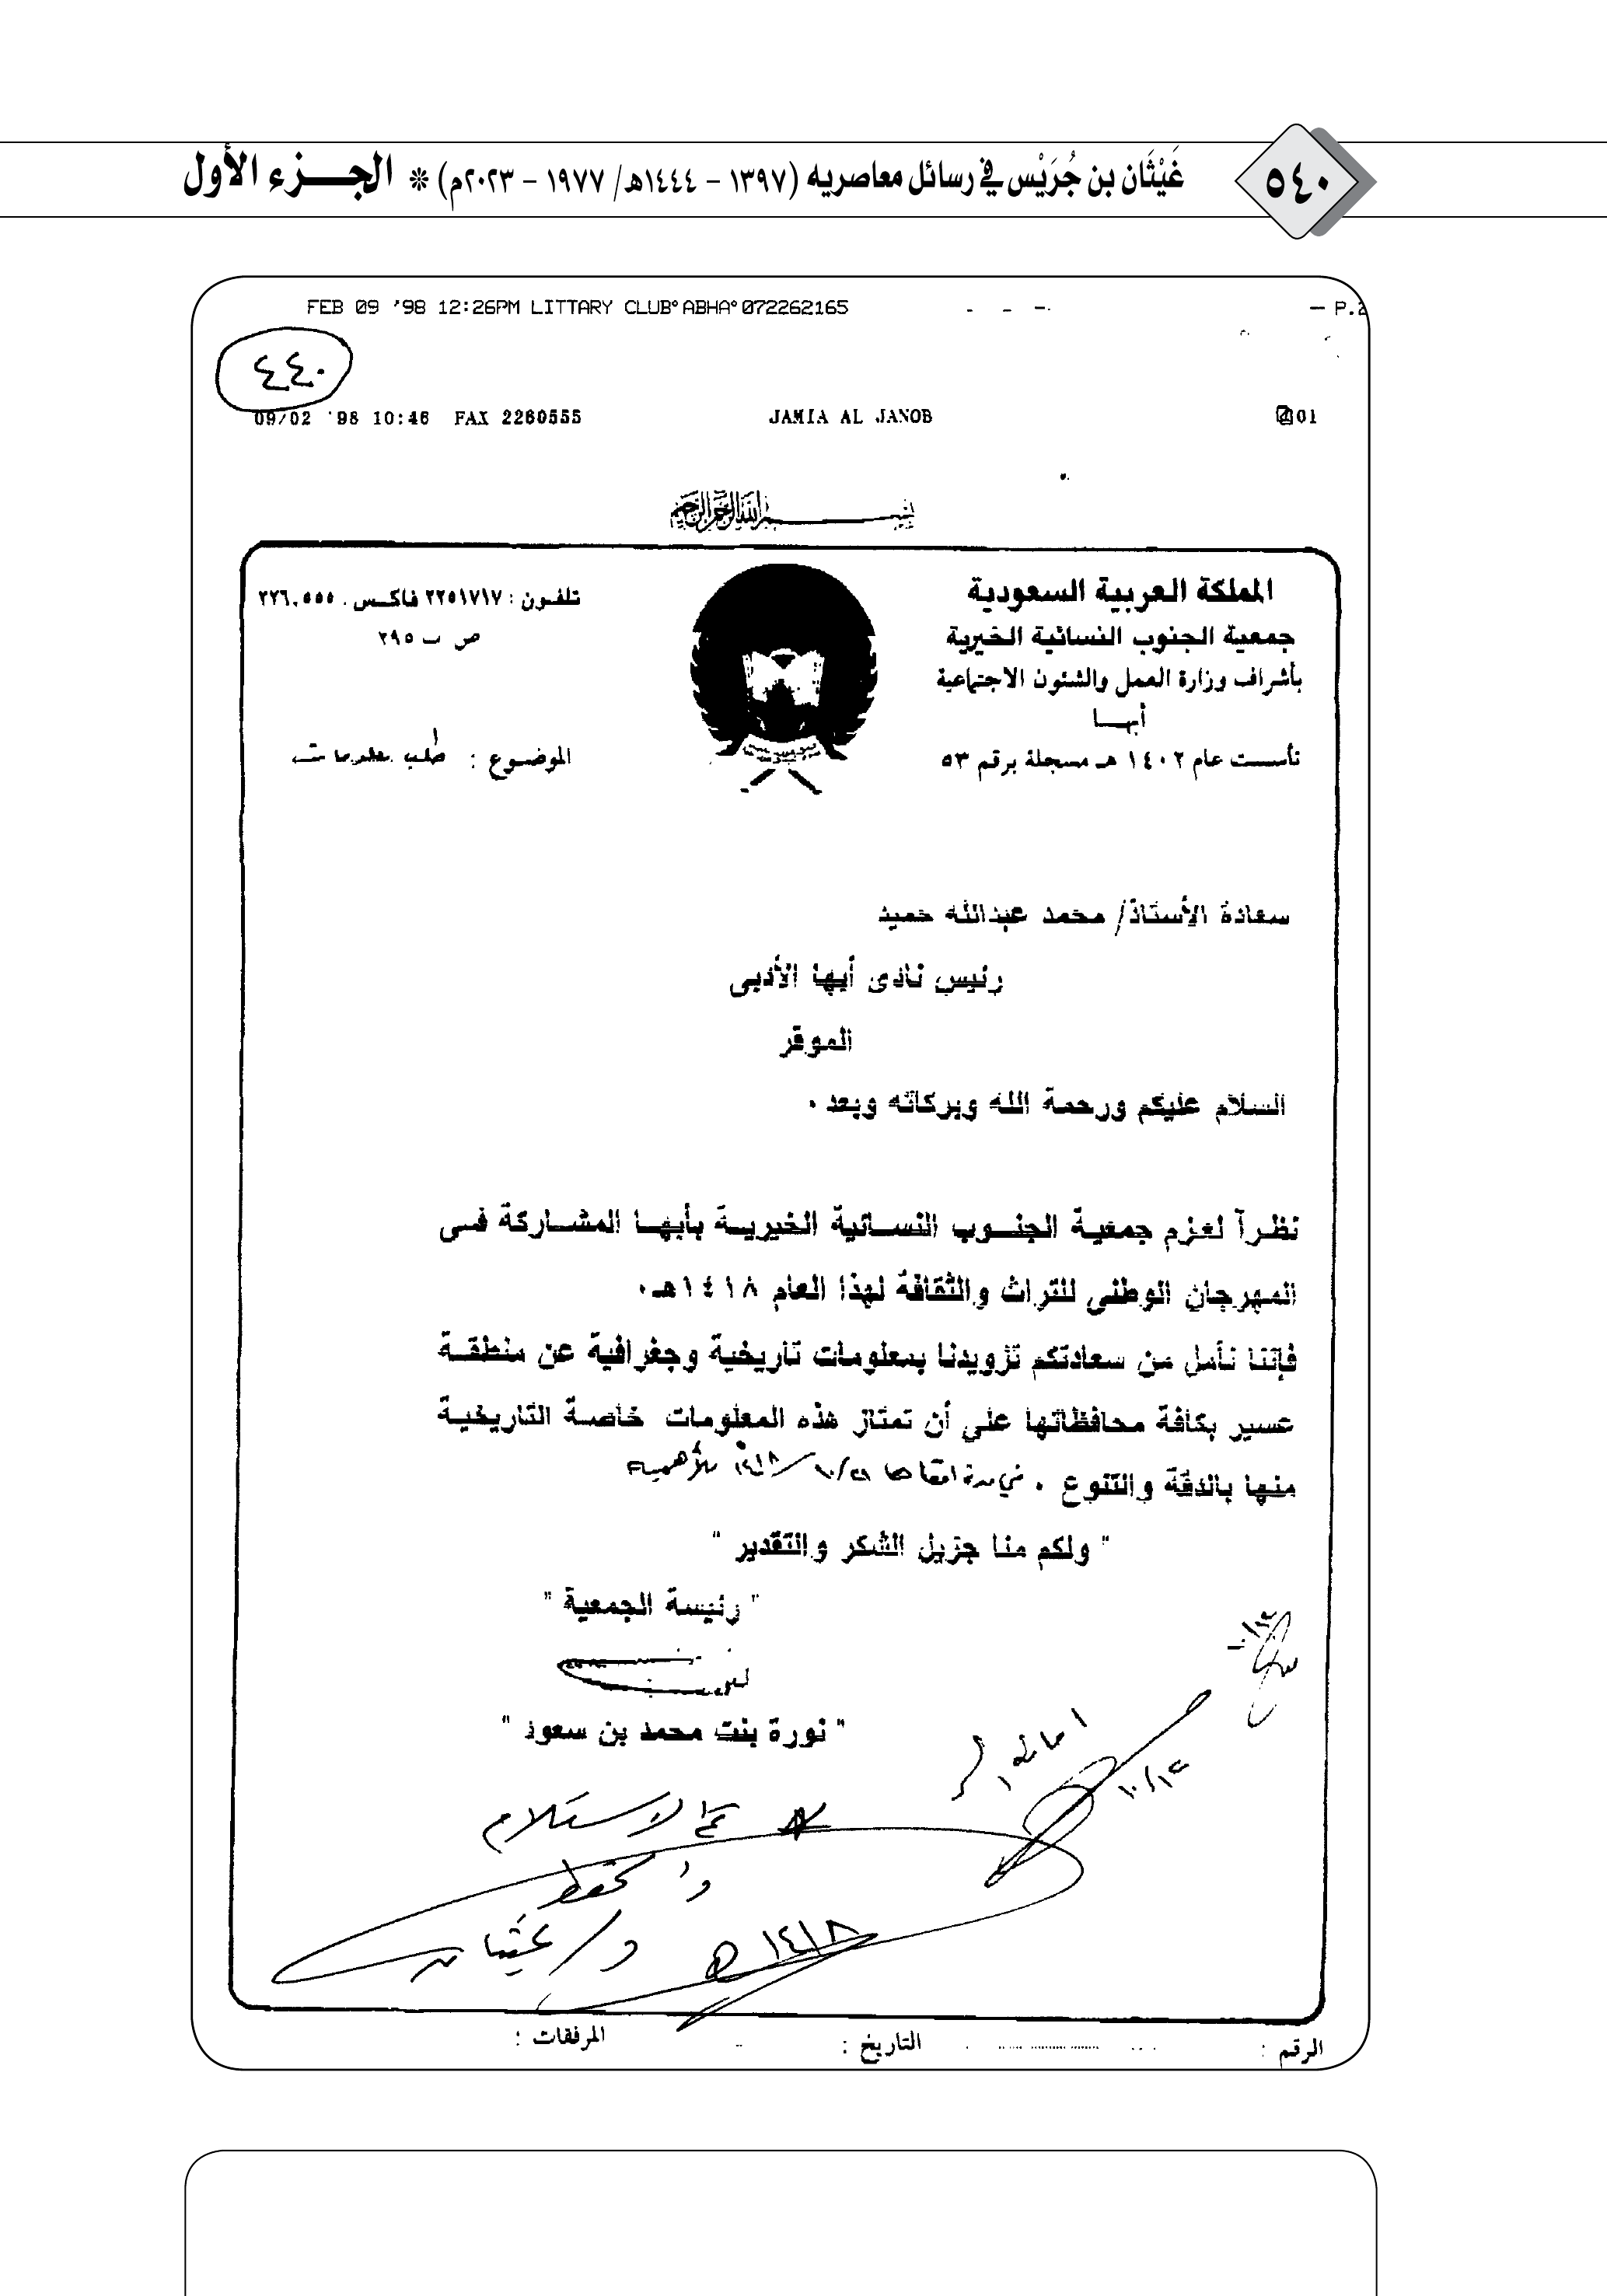 ٥٤٠
غَيْثَان بن جُرَيْس في رسائل معاصريه (١٣٩٧ - ١٤٤٤هـ/ ١٩٧٧ - ٢٠٢٣م) * الجزء الأول
FEB 09 '98 12:26PM LITTARY CLUB°ABHA°072262165 — P.2
٤٤٠
09/02 '98 10:46 FAX 2260555 JAMIA AL JANOB 01
بسم الله الرحمن الرحيم
المملكة العربية السعودية
جمعية الجنوب النسائية الخيرية
بأشراف وزارة العمل والشئون الاجتماعية
أبها
تأسست عام ١٤٠٢ هـ مسجلة برقم ٥٣
تلفون : ٢٢٥١٧١٧ فاكس . ٢٢٦٠٥٥٥
ص ب ٢٩٥
الموضوع : طلب معلومات
سعادة الأستاذ/ محمد عبدالله حميد
رئيس نادى أبها الأدبى
الموقر
السلام عليكم ورحمة الله وبركاته وبعد .
نظرآ لعزم جمعية الجنوب النسائية الخيرية بأبها المشاركة فى
المهرجان الوطنى للتراث والثقافة لهذا العام ١٤١٨هـ .
فإننا نأمل من سعادتكم تزويدنا بمعلومات تاريخية وجغرافية عن منطقة
عسير بكافة محافظاتها على أن تمتاز هذه المعلومات خاصة التاريخية
منها بالدقة والتنوع . في مدة اقصاها ١٠/٢١/ ١٤١٨هـ للأهمية
" ولكم منا جزيل الشكر والتقدير "
" رئيسة الجمعية "
" نورة بنت محمد بن سعود "
١٠/١٢
١٠/١٢
* تم الاستلام
والحفظ
د/ غيثان
١٤١٨ هـ
الرقم : التاريخ : المرفقات :